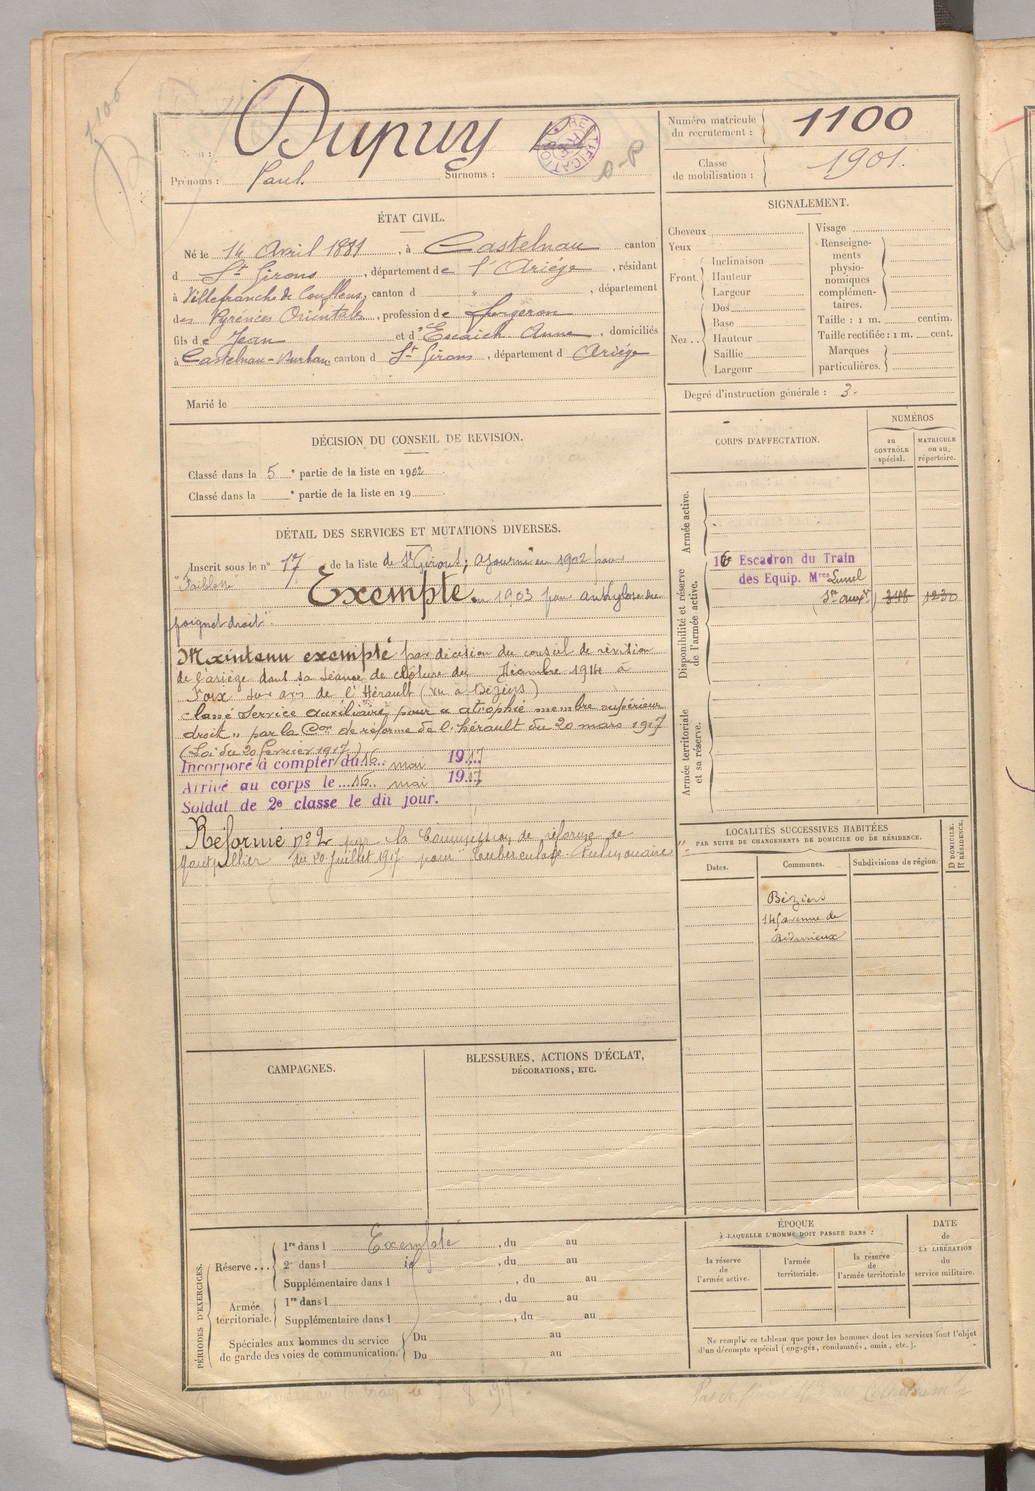 1100
Nom : Dupuy Paul
RECTIFICATION
Prénoms : Paul. Surnoms :
Numéro matricule
du recrutement : 1100
Classe
de mobilisation : 1901.
ÉTAT CIVIL.
Né le 14 Avril 1881, à Castelnau canton
d St Girons, département de l'Ariége, résidant
à Villefranche de Conflens, canton d " , département
des Pyrénées Orientales, profession de forgeron
fils de Jean et d'Escaich Anne, domiciliés
à Castelnau-Durban canton d St Girons, département d Ariége
Marié le
SIGNALEMENT.
Cheveux
Yeux
Front. Inclinaison
Hauteur
Largeur
Nez.. Dos
Base
Hauteur
Saillie
Largeur
Visage
Renseigne-
ments
physio-
nomiques
complémen-
taires.
Taille : 1 m. centim.
Taille rectifiée : 1 m. cent.
Marques
particulières.
Degré d'instruction générale : 3.
DÉCISION DU CONSEIL DE REVISION.
Classé dans la 5 e partie de la liste en 1902
Classé dans la e partie de la liste en 19
DÉTAIL DES SERVICES ET MUTATIONS DIVERSES.
Inscrit sous le n° 17 de la liste de St Girons; ajourné en 1902 pour
"Faiblesse" Exempté en 1903 pour ankylose du
poignet droit".
Maintenu exempté par décision du conseil de révision
de l'ariège dans sa séance de clôture du Xbre 1914 à
Foix sur avis de l'Hérault (vu à Béziers)
classé service auxiliaire, pour " atrophie membre supérieur
droit " par la Con de réforme de l'hérault du 20 mars 1917
(Loi du 20 février 1917.)
Incorporé à compter du 16 mai 1917
Arrivé au corps le 16 mai 1917
Soldat de 2e classe le dit jour.
Réformé n° 2 par la Commission de réforme de
Montpellier du 20 Juillet 1917 pour Tuberculose Pulmonaire
CORPS D'AFFECTATION.
NUMÉROS
au
CONTRÔLE
spécial.
MATRICULE
ou au
répertoire.
Armée active.
Disponibilité et réserve
de l'armée active.
16 Escadron du Train
des Equip. Mres Lunel
(Sce auxre) 348 1230
Armée territoriale
et sa réserve.
LOCALITÉS SUCCESSIVES HABITÉES
PAR SUITE DE CHANGEMENTS DE DOMICILE OU DE RÉSIDENCE.
Dates.
Communes.
Subdivisions de région.
D DOMICILE.
R RÉSIDENCE.
Béziers
145 avenue de
Bédarieux
CAMPAGNES.
BLESSURES, ACTIONS D'ÉCLAT,
DÉCORATIONS, ETC.
PÉRIODES D'EXERCICES.
Réserve ... 1re dans l Exempté, du au
2e dans l id, du au
Supplémentaire dans l , du au
Armée
territoriale. 1re dans l , du au
Supplémentaire dans l , du au
Spéciales aux hommes du service
de garde des voies de communication. Du au
Du au
ÉPOQUE
À LAQUELLE L'HOMME DOIT PASSER DANS :
la réserve
de
l'armée active.
l'armée
territoriale.
la réserve
de
l'armée territoriale
DATE
de
LA LIBÉRATION
du
service militaire.
Ne remplir ce tableau que pour les hommes dont les services font l'objet
d'un décompte spécial (engagés, condamnés, omis, etc.).